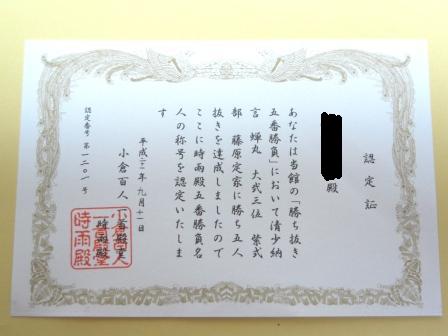 認定証
殿
あなたは当館の「勝ち抜き
五番勝負」において清少納
言 蝉丸 大弐三位 紫式
部 藤原定家に勝ち五人
抜きを達成しましたので
ここに時雨殿五番勝負名
人の称号を認定いたしま
す
平成二十二年九月十一日
小倉百人一首殿堂
時雨殿
認定番号 第一二〇一号
小倉百人
一首殿堂
時雨殿